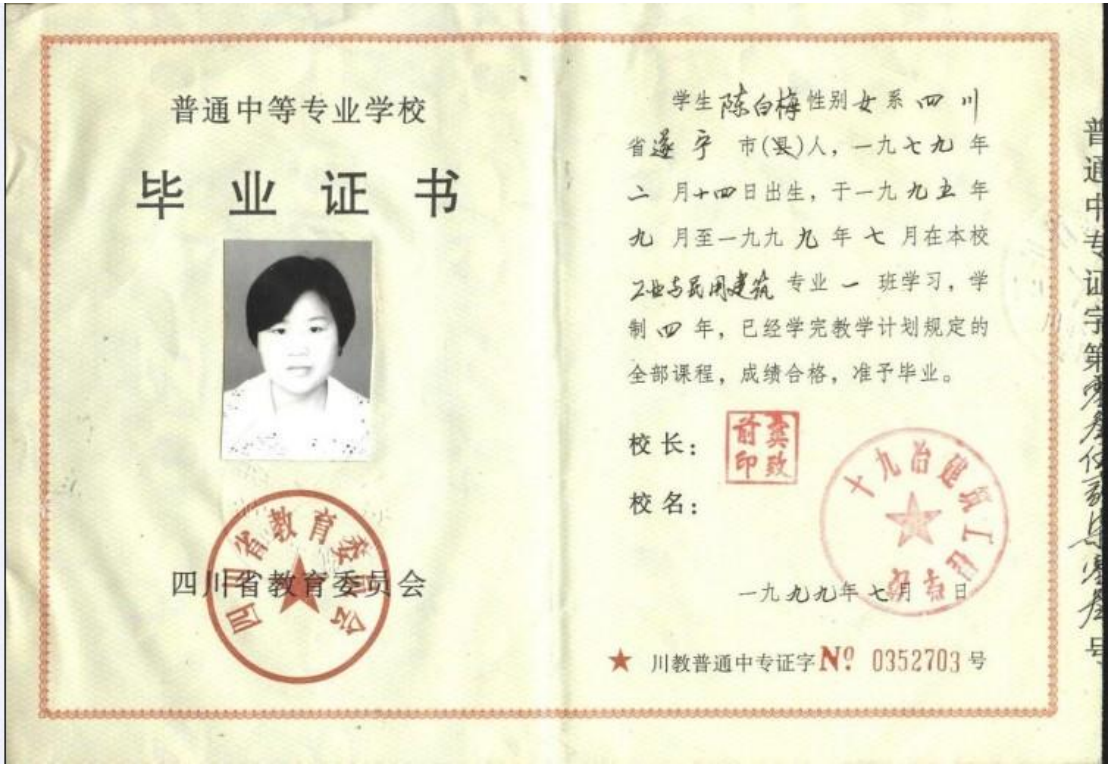 普通中等专业学校
毕业证书
四川省教育委员会
四川省教育委员会
学生陈白梅性别女系四川
省遂宁市(县)人，一九七九年
二月十四日出生，于一九九五年
九月至一九九九年七月在本校
工业与民用建筑专业一班学习，学
制四年，已经学完教学计划规定的
全部课程，成绩合格，准予毕业。
校长：
龚致前印
校名：
十九冶建筑工程学校
一九九九年七月 日
★ 川教普通中专证字 Nº 0352703 号
普通中专证字第 号